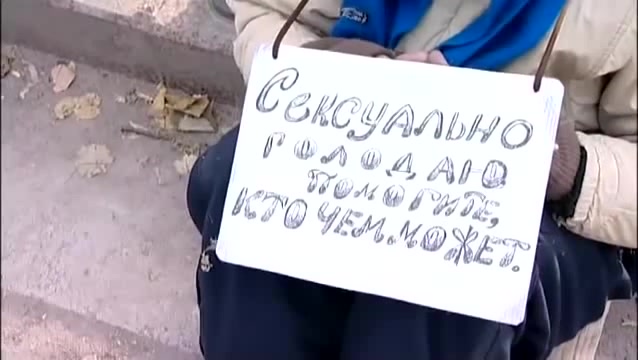 Сексуально
голодаю.
помогите,
кто чем может.